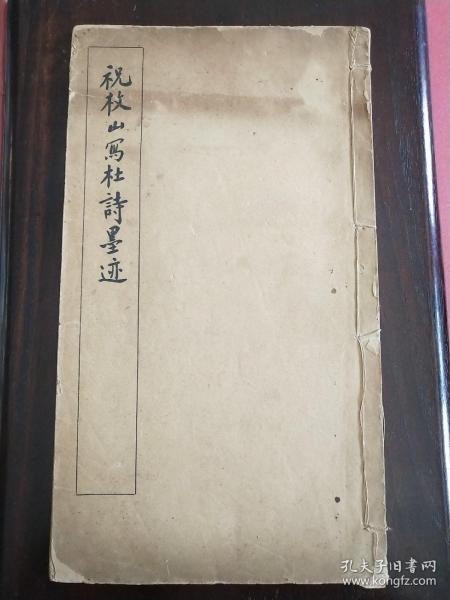 祝枝山寫杜詩墨迹
孔夫子旧书网
www.kongfz.com